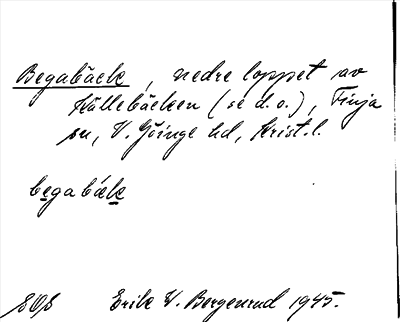 Begabäck, nedre loppet av
Källebäcken (se d.o.), Finja
sn, V. Göinge hd, Krist. l.
begabäk
Erik V. Borgenrud 1945.